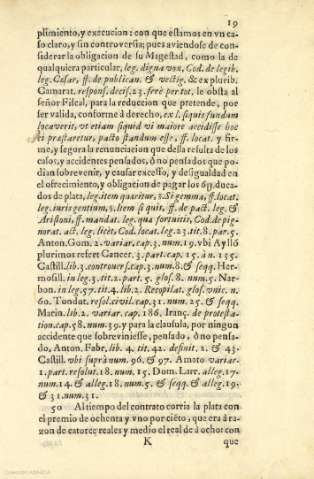 19
plimiento, y execucion: con que estamos en vn ca-
so claro, y sin controversia; pues aviendose de con-
siderar la obligacion de su Magestad, como la de
qualquiera particular, leg. digna vox, Cod. de legib.
leg. Cæsar, ff. de publican. & vectig. & ex plurib.
Gamarat. respons. decis. 23. ferè per tot. le obsta al
señor Fiscal, para la reduccion que pretende, por
ser valida, conforme à derecho, ex l. si quis fundum
locaverit, vt etiam si quid vi maiore accidisse hoc
ei præstaretur, pacto standum esse, ff. locat. y fir-
me, y segura la renunciacion que desta resulta de los
casos, y accidentes pensados, ò no pensados que po-
dian sobrevenir, y causar excesso, y desigualdad en
el ofrecimiento, y obligacion de pagar los 6y. duca-
dos de plata, leg. item quæritur, §. Si gemma, ff. locat.
leg. iuris gentium, §. Item si quis, ff. de pact. leg. &
Aristoni, ff. mandat. leg. quæ fortuitis, Cod. de pig-
norat. act. leg. licèt, Cod. locat. leg. 23. tit. 8. par. 5.
Anton. Gom. 2. variar. cap. 3. num. 19. vbi Ayllò
plurimos refert Cancer. 3. part. cap. 15. à n. 135.
Castill. lib. 3. controvers. cap. 3. num. 8. & seqq. Her-
mosill. in leg. 3. tit. 2. part. 5. glos. 8. num. 5. Nar-
bon. in leg. 57. tit. 4. lib. 2. Recopilat. glos. vnic. n.
60. Tondut. resol. civil. cap. 31. num. 25. & seqq.
Marin. lib. 2. variar. cap. 186. Iranç. de protesta-
tion. cap. 58. num. 39. y para la clausula, por ningun
accidente que sobreviniesse, pensado, ò no pensa-
do, Anton. Fabr. lib. 4. tit. 42. definit. 2. & 43.
Castill. vbi suprà num. 96. & 97. Amato variar.
1. part. resolut. 18. num. 15. Dom. Larr. alleg. 17.
num. 14. & alleg. 18. num. 5. & seqq. & alleg. 19.
& 31. num. 31.
50 Al tiempo del contrato corria la plata con
el premio de ochenta y vno por ciẽto, que era à ra-
zon de catorze reales y medio el real de à ocho: con
K que